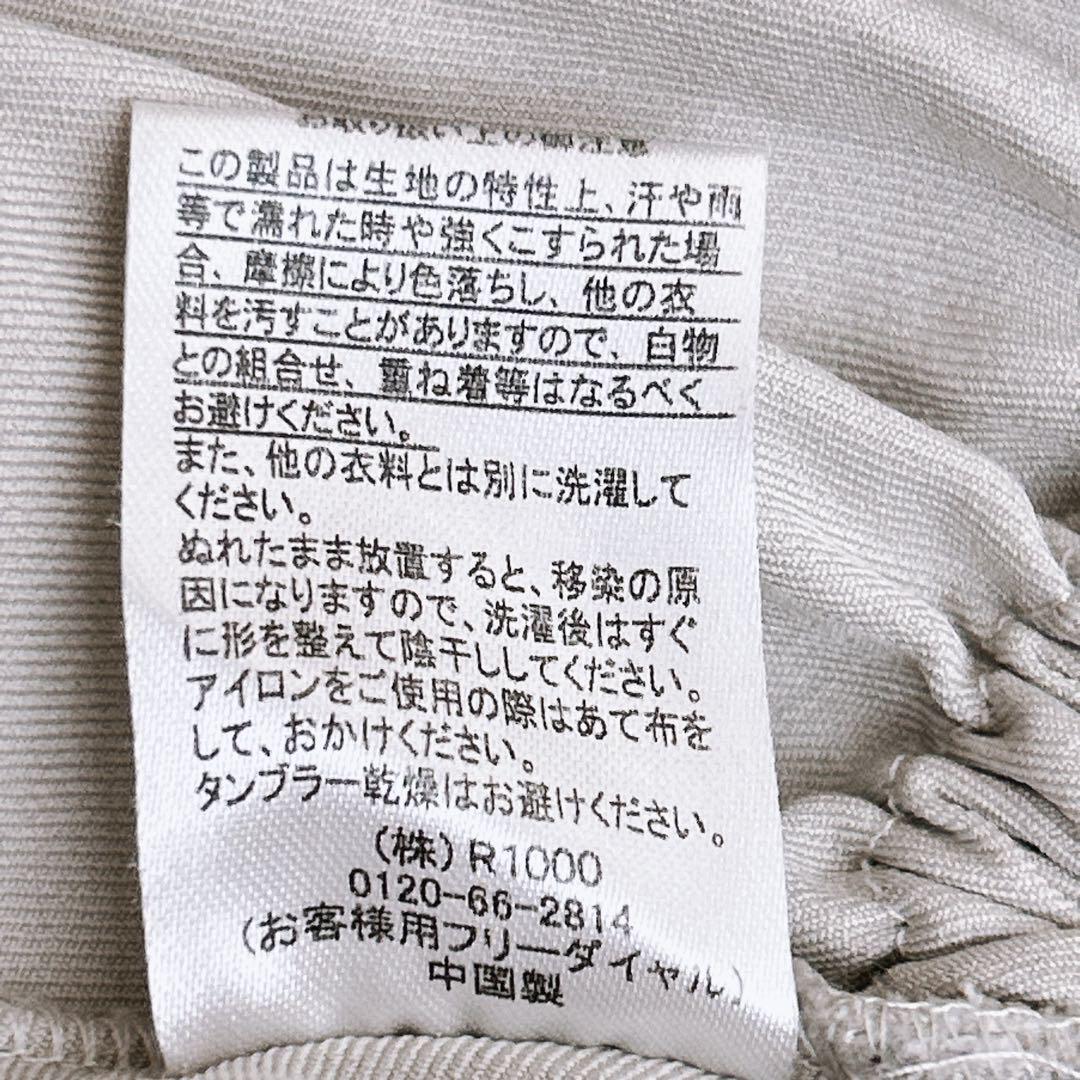 お取り扱い上の御注意
この製品は生地の特性上、汗や雨
等で濡れた時や強くこすられた場
合、摩擦により色落ちし、他の衣
料を汚すことがありますので、白物
との組合せ、重ね着等はなるべく
お避けください。
また、他の衣料とは別に洗濯して
ください。
ぬれたまま放置すると、移染の原
因になりますので、洗濯後はすぐ
に形を整えて陰干ししてください。
アイロンをご使用の際はあて布を
して、おかけください。
タンブラー乾燥はお避けください。
(株)R1000
0120-66-2814
(お客様用フリーダイヤル)
中国製